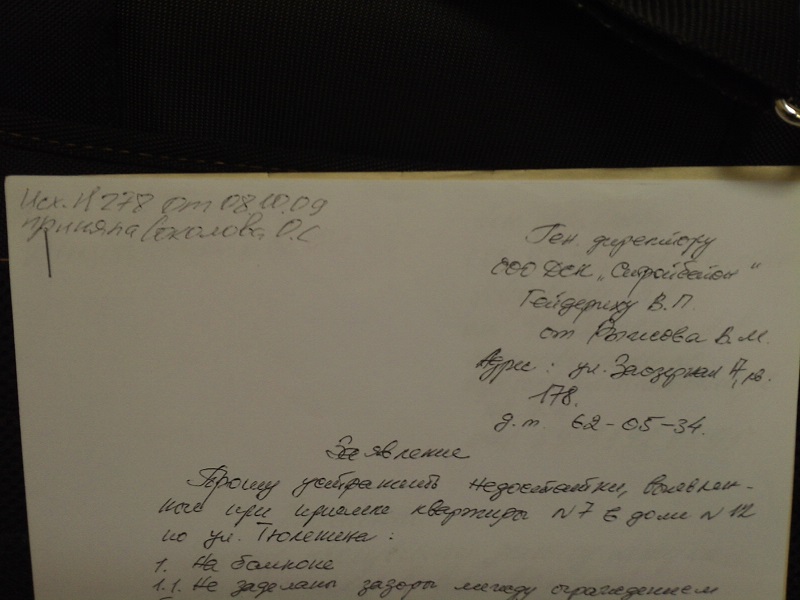 Исх. N 278 от 08.10.09
приняла Соколова О.С
Ген. директору
ООО ДСК „Стройбетон“
Гейдериху В.П.
от Рыжова В.М.
Адрес: ул. Заозерная 7, кв.
178.
д.т. 62-05-34.
Заявление
Прошу устранить недостатки, выявлен-
ные при приемке квартиры N7 в доме N 12
по ул. Тюленина:
1. На балконе
1.1. Не заделаны зазоры между ограждением